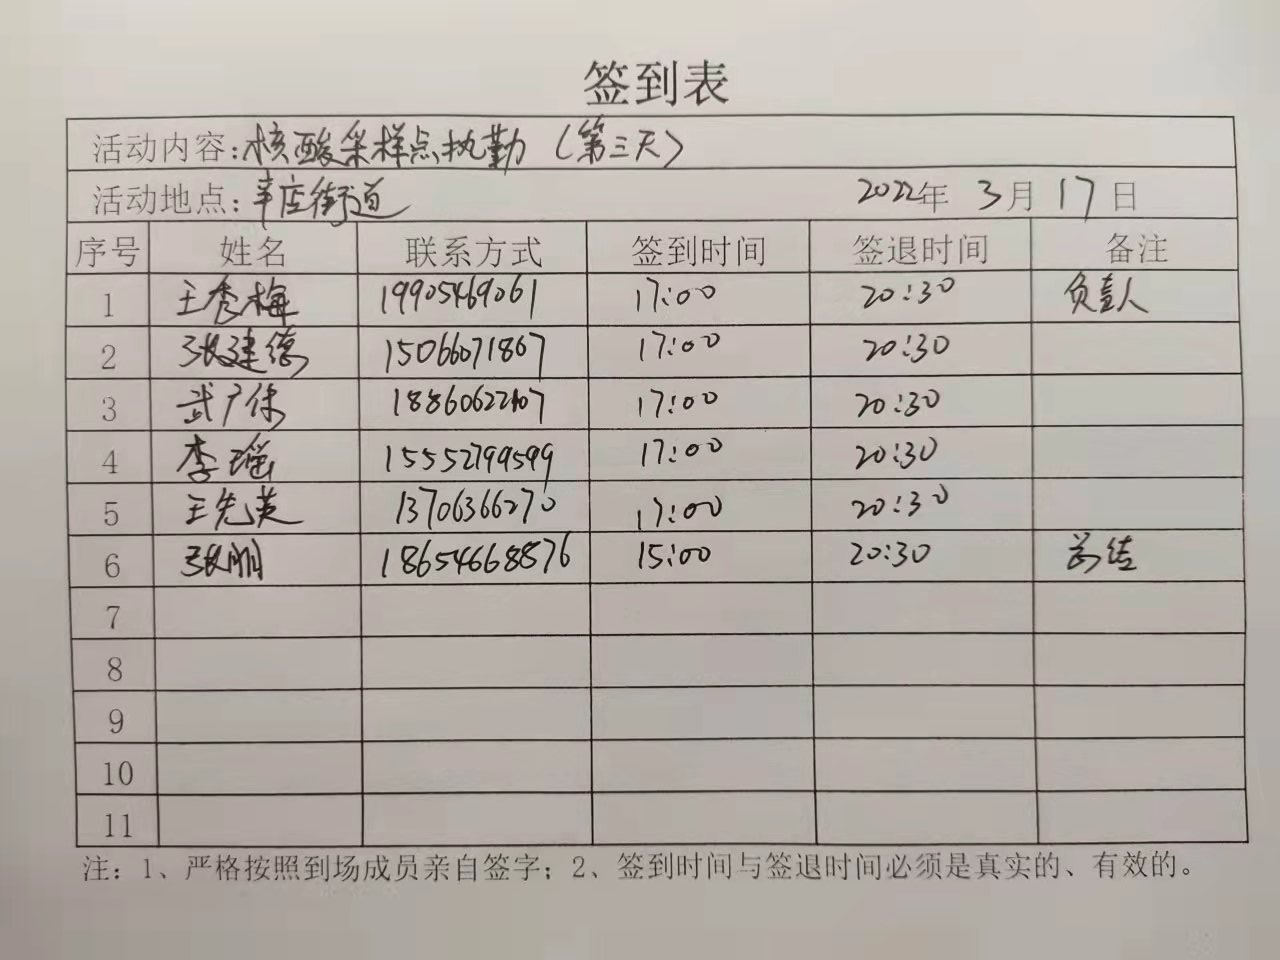 签到表
活动内容:核酸采样点执勤(第三天)
活动地点:辛店街道 2022年 3月 17日
序号 姓名 联系方式 签到时间 签退时间 备注
1 王秀梅 19905469061 17:00 20:30 负责人
2 张建德 15066071867 17:00 20:30
3 武广保 17:00 20:30
4 李瑶 15552799599 17:00 20:30
5 王先英 13706366270 17:00 20:30
6 张鹏 18654668876 15:00 20:30 总结
7
8
9
10
11
注:1、严格按照到场成员亲自签字;2、签到时间与签退时间必须是真实的、有效的。